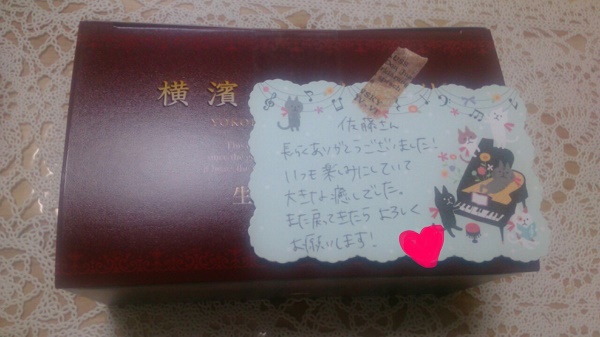 横濱
YOKO
生
佐藤さん
長らくありがとうございました!
いつも楽しみにしていて
大きな癒しでした。
また戻ってきたらよろしく
お願いします!